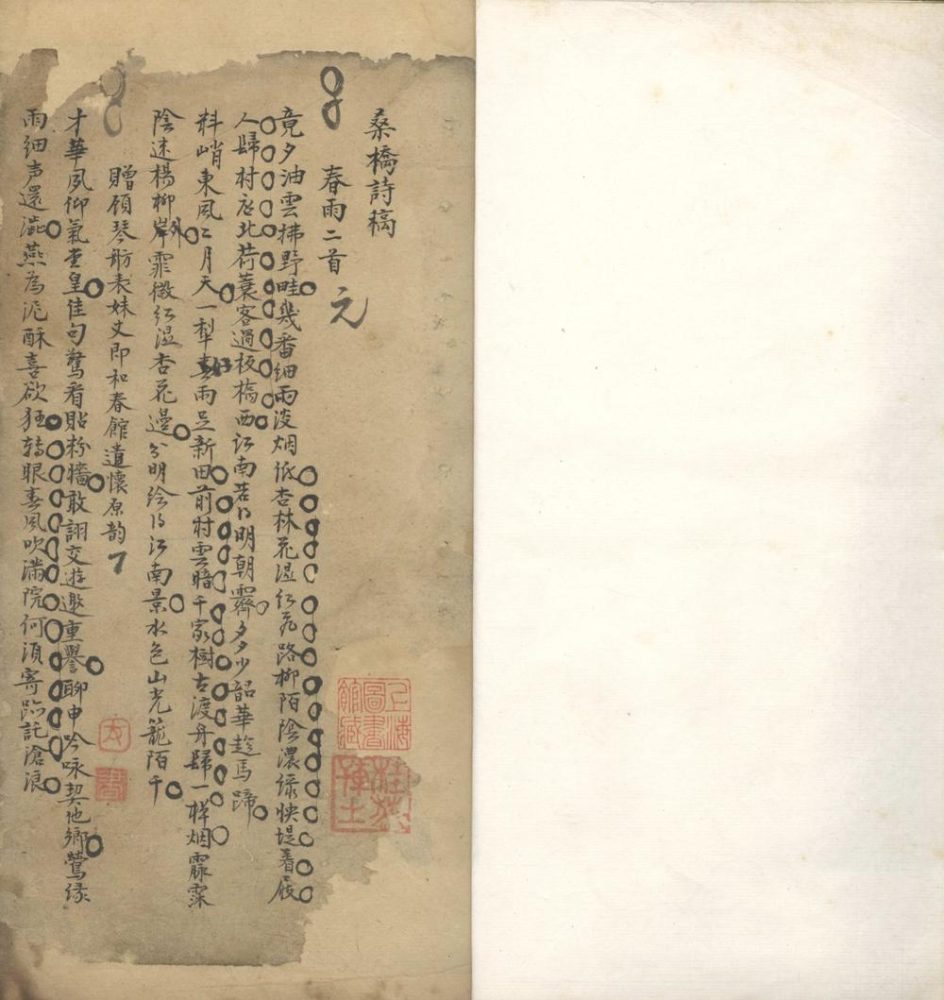 桑橋詩稿
春雨二首 元
竟夕油雲拂野畦幾番細雨淡烟低杏林花溼紅充路柳陌陰濃綠快堤看屐
人歸村店北荷蓑客過板橋西江南若得明朝霽多少韶華趁馬蹄
料峭東風二月天一犁春雨足新田前村雲暗千家樹古渡舟歸一樣烟霏霂
陰迷楊柳岸外霏微紅溼杏花邊分明绘得江南景水色山光籠陌千
贈顧琴舫表妹丈即和春館遣懷原韵
才華夙仰氣堂皇佳句驚看貼粉牆敢詡交遊邀重譽聊申吟咏契他鄉鶯緣
雨細声還澁燕為泥酥喜欲狂轉眼春風吹滿院何須寄跡託滄浪
上海圖書館藏